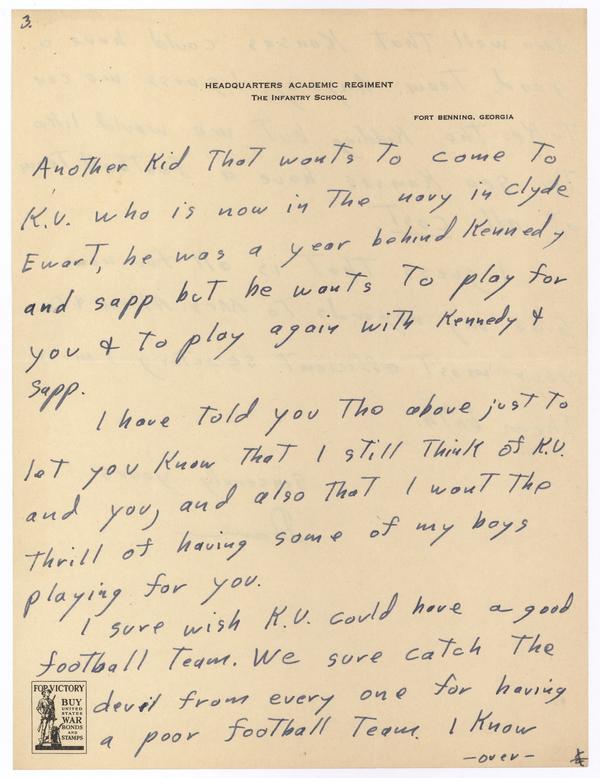 3.
HEADQUARTERS ACADEMIC REGIMENT
THE INFANTRY SCHOOL
FORT BENNING, GEORGIA
Another Kid That wants To come To
K.U. who is now in The navy in Clyde
Ewart, he was a year behind Kennedy
and sapp but he wants To play for
you & to play again with Kennedy &
Sapp.
I have told you The above just To
let you Know That I still Think of K.U.
and you, and also That I want The
Thrill of having some of my boys
playing for you.
I sure wish K.U. could have a good
football Team. We sure catch The
devil from every one for having
a poor football Team. I Know
-over-
FOR VICTORY
BUY
UNITED
STATES
WAR
BONDS
AND
STAMPS